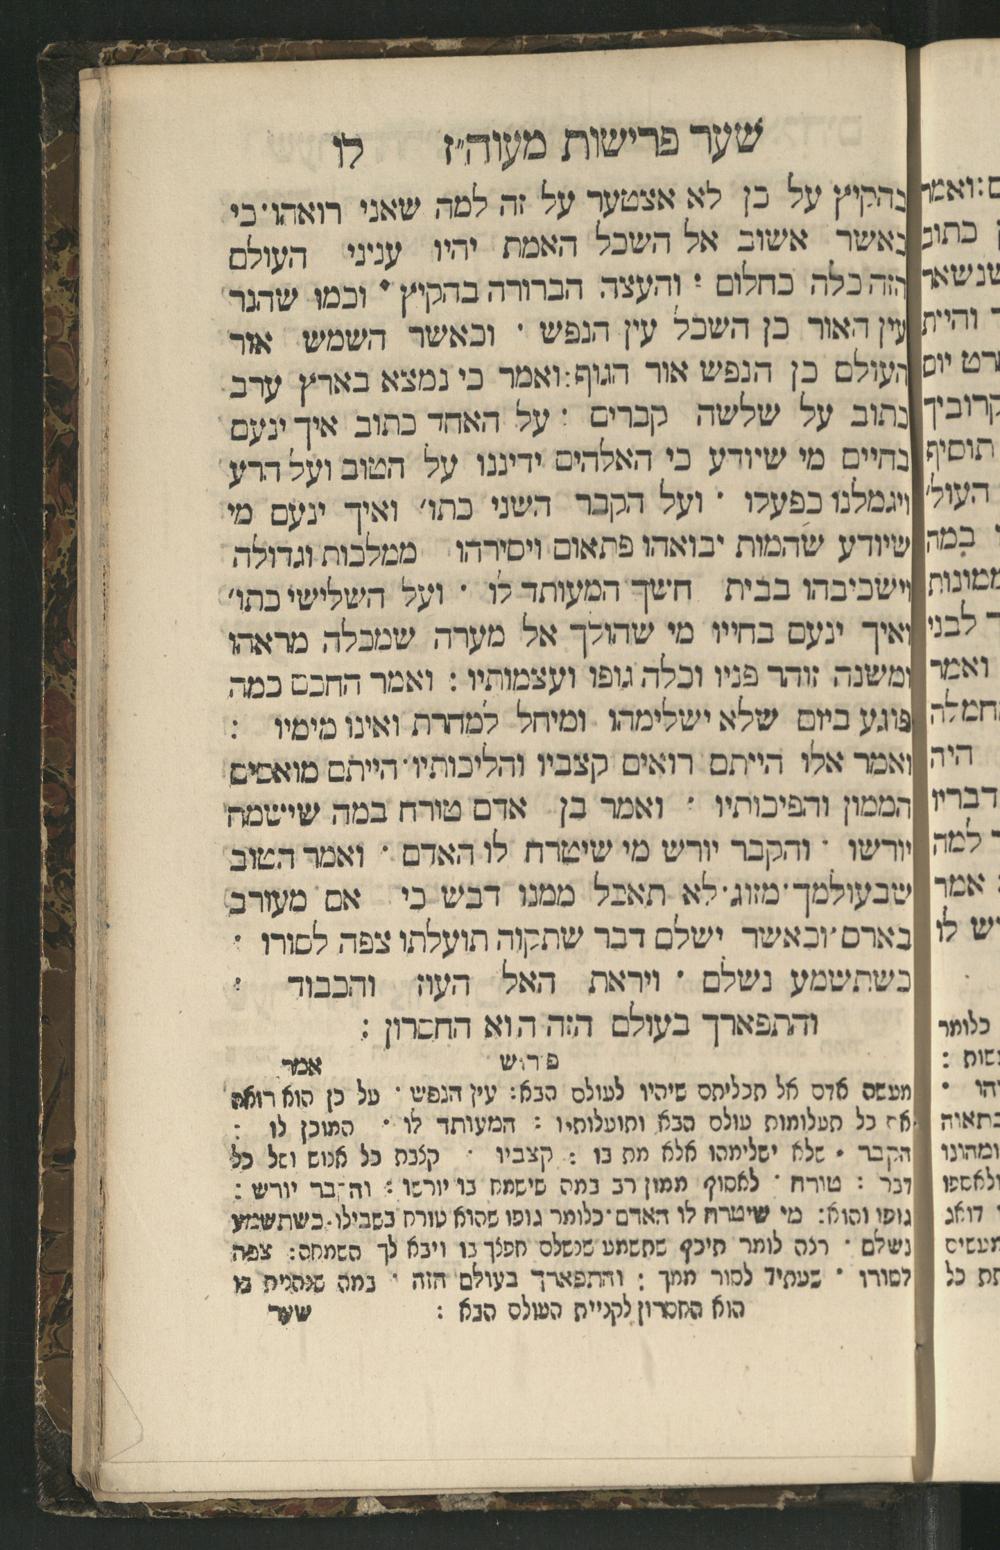 שער פרישות מעוה״ז לו
בהקיץ על כן לא אצטער על זה למה שאני רואהו׳ כי
כאשר אשוב אל השכל האמת יהיו עניני העולם
הזה כלה כחלום : והעצה הברורה בהקיץ ׳ וכמו שהנר
עין האור כן השכל עין הנפש ׳ וכאשר השמש אור
העולם כן הנפש אור הגוף : ואמר כי נמצא בארץ ערב
כתוב על שלשה קברים : על האחד כתוב איך ינעם
בחיים מי שיודע כי האלהים ידיננו על הטוב ועל הרע
ויגמלנו כפעלו ׳ ועל הקבר השני כתו׳ ואיך ינעם מי
שיודע שהמות יבואהו פתאום ויסירהו ממלכות וגדולה
וישכיבהו בבית חשך המעותד לו ׳ ועל השלישי כתו׳
ואיך ינעם בחייו מי שהולך אל מערה שמכלה מראהו
ומשנה זוהר פניו וכלה גופו ועצמותיו : ואמר החכם כמה
פוגע ביום שלא ישלימהו ומיחל למחרת ואינו מימיו :
ואמר אלו הייתם רואים קצביו והליכותיו׳ הייתם מואסים
הממון והפיכותיו : ואמר בן אדם טורח במה שישמח
יורשו ׳ והקבר יורש מי שיטרח לו האדם ׳ ואמר הטוב
שבעולמך׳ מזוג׳ לא תאכל ממנו דבש כי אם מעורב
בארס׳ וכאשר ישלם דבר שתקוה תועלתו צפה לסורו :
כשתשמע נשלם ׳ ויראת האל העוז והכבוד :
והתפארך בעולם הזה הוא החסרון :
פרוש אמר
מעשה אדם אל תכליתם שיהיו לעולם הבא : עין הנפש ׳ על כן הוא רואה
את כל תעלומות עולם הבא ותועלותיו : המעותד לו ׳ המוכן לו :
הקבר ׳ שלא ישלימהו אלא מת בו : קצביו ׳ קצבת כל אנוש ושל כל
דבר : טורח ׳ לאסוף ממון רב במה שישמח בו יורשו : והקבר יורש :
גופו והוא : מי שיטרח לו האדם׳ כלומר גופו שהוא טורח בשבילו׳ כשתשמע
נשלם ׳ רצה לומר תיכף שתשמע שנשלם חפצך בו ויבא לך השמחה : צפה
לסורו ׳ שעתיד לסור ממך : והתפארך בעולם הזה ׳ במה בו
הוא החסרון לקניית העולם הבא : שער